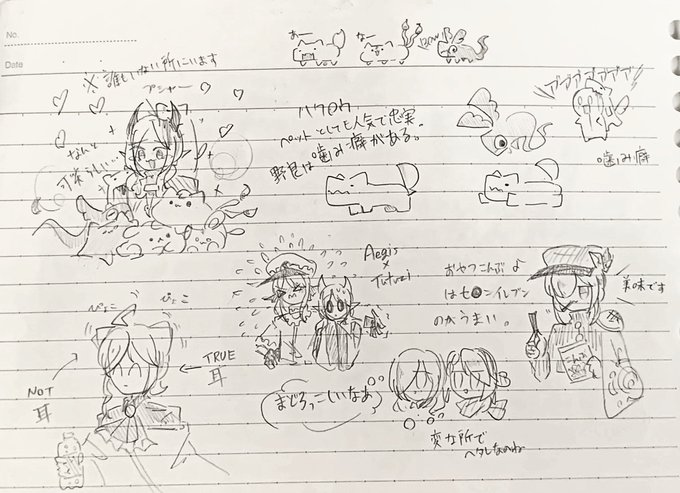 No.
Date
あー
なー
※誰もいない所にいます
プシャー
なんと
可愛らしい…
ハクロウ
ペットとしても人気で忠実。
野良は噛み癖がある。
アアアアアアア
噛み癖
Aegis
×
Tutuzi
おやつこんぶよ
はセ●ンイレブン
のがうまい。
美味です
ぴょこ
ぴょこ
NOT
耳
TRUE
耳
まどろっこしいなあ
変な所で
ヘタレなのね